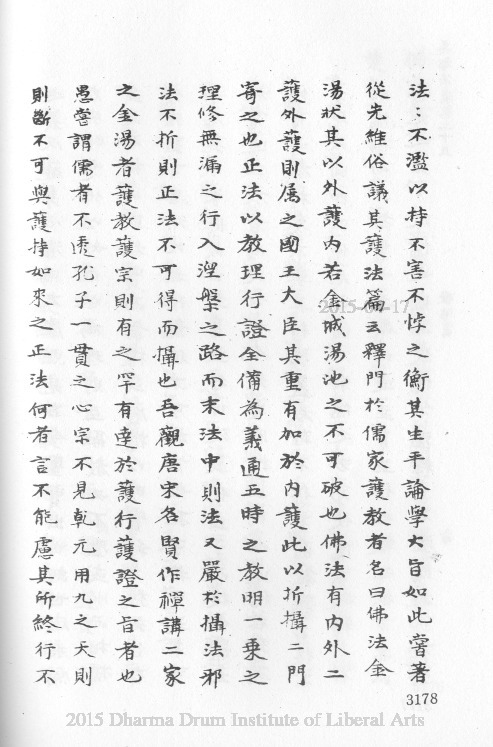 法ヽ不濫以持不害不悖之衡其生平論學大旨如此嘗著
從先維俗議其護法篇云釋門於儒家護教者名曰佛法金
湯狀其以外護內若金城湯池之不可破也佛法有內外二
護外護則屬之國王大臣其重有加於內護此以折攝二門
寄之也正法以教理行證全備為義通五時之教明一乗之
理修無漏之行入涅槃之路而末法中則法又嚴於攝法邪
法不折則正法不可得而攝也吾觀唐宋名賢作禪講二家
之金湯者護教護宗則有之罕有達於護行護證之旨者也
愚嘗謂儒者不透孔子一貫之心宗不見乾元用九之天則
則斷不可與護持如來之正法何者言不能慮其所終行不
3178
2015-07-17
2015 Dharma Drum Institute of Liberal Arts